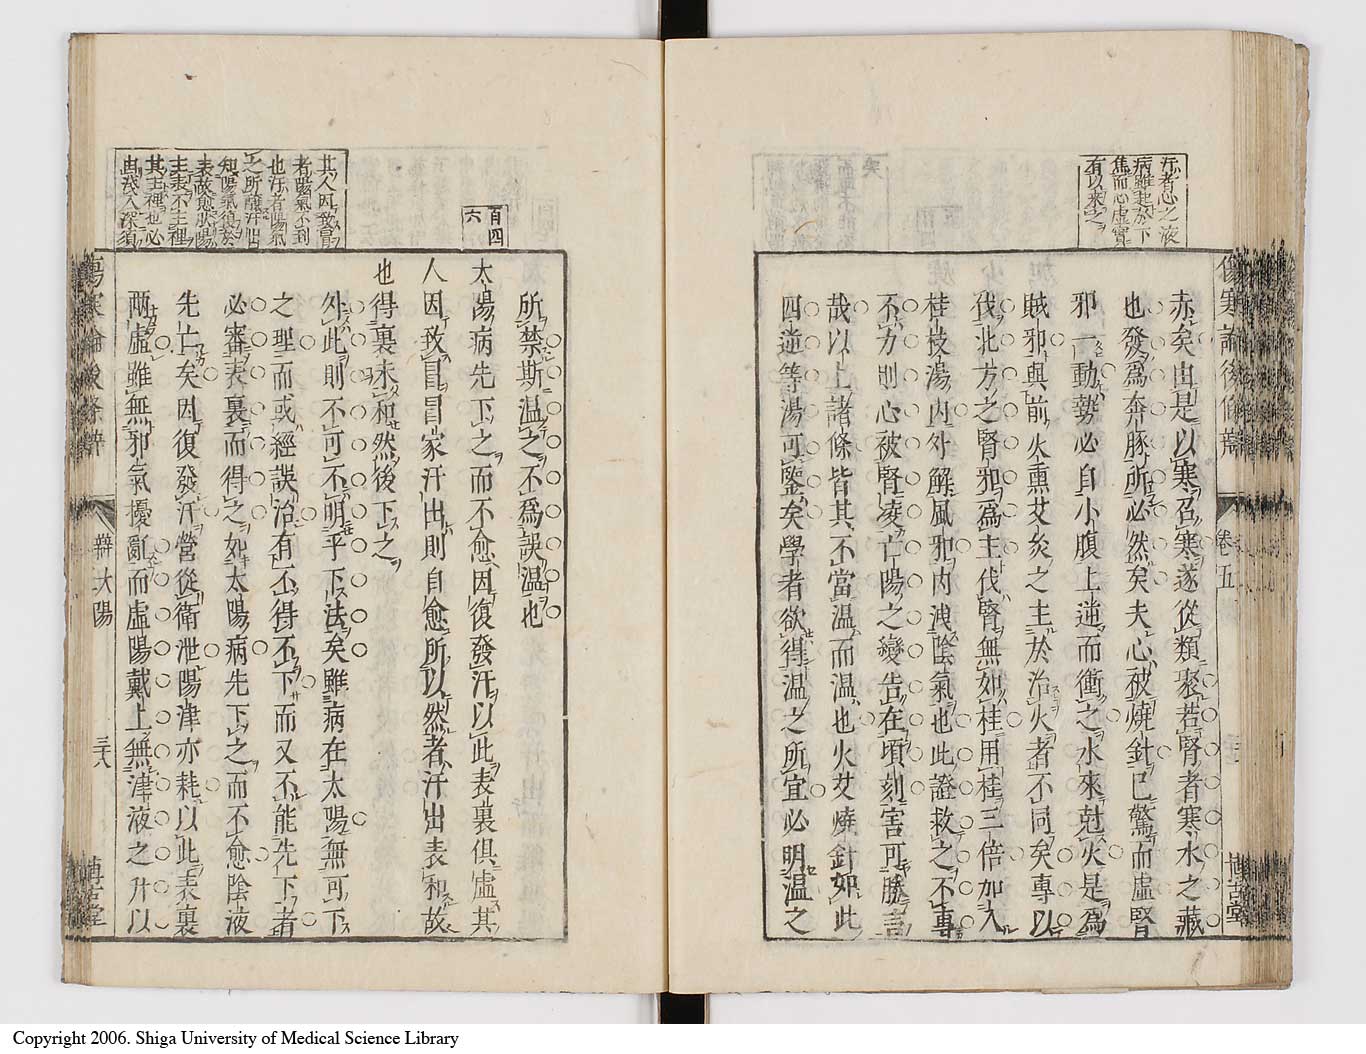 汗者心之液
病雖起於下
焦而心虛實
有以來之
傷寒論後條辨
卷五
博古堂
赤矣由是以寒召寒遂從類聚若腎者寒水之藏
也發爲奔豚所必然矣夫心被燒針已驚而虛腎
邪一動勢必自小腹上逆而衝之水來尅火是爲
賊邪與前火熏艾灸之主於治火者不同矣專以
伐北方之腎邪爲主伐腎無如桂用桂三倍加入
桂枝湯内外解風邪内洩陰氣也此證救之不專
不力則心被腎凌亡陽之變告在頃刻害可勝言
哉以上諸條皆其不當温而温也火艾燒針如此
四逆等湯可鑒矣學者欲得温之所宜必明温之
所禁斯温之不爲誤温也
百四
六
太陽病先下之而不愈因復發汗以此表裏俱虛其
人因致冒冒家汗出則自愈所以然者汗出表和故
也得裏未和然後下之
外此則不可不明乎下法矣雖病在太陽無可下
之理而或經誤治有不得不下而又不能先下者
必審表裏而得之如太陽病先下之而不愈陰液
先亡矣因復發汗營從衛泄陽津亦耗以此表裏
兩虛雖無邪氣擾亂而虛陽戴上無津液之升以
其人因致冒
者陽氣不到
也汗者陽氣
之所釀汗出
知陽氣復於
表故愈狀陽
主表不主裡
其主裡也必
由淺入深須
傷寒論後條辨
辨太陽
三十八
博古堂
Copyright 2006. Shiga University of Medical Science Library